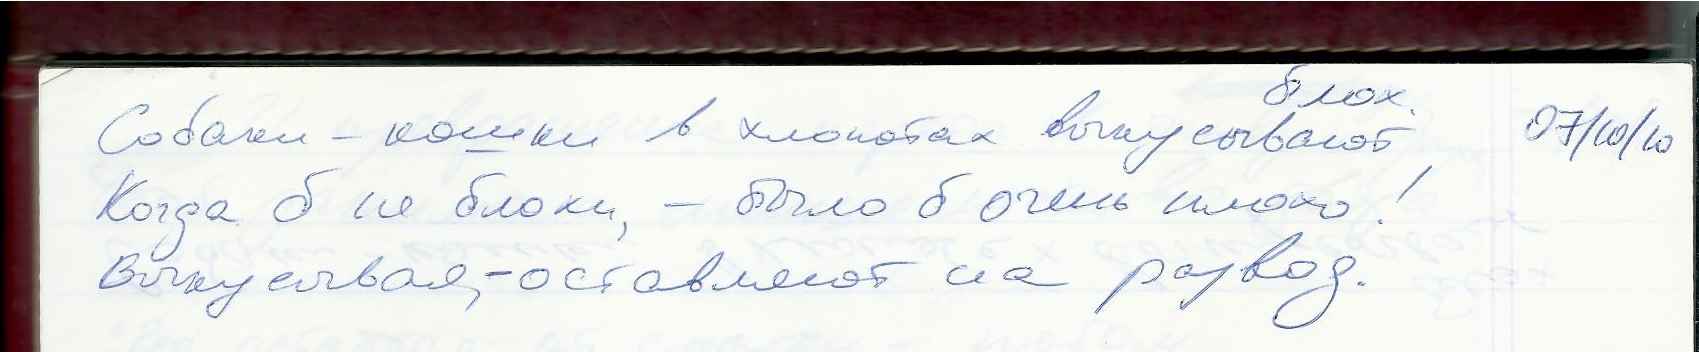 Собаки-кошки в хлопотах выкусывают блох. 07/10/10
Когда б не блохи, - было б очень плохо!
Выкусывая,-оставляют на развод.